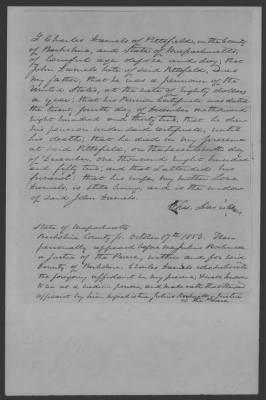 I Charles Daniels of Pittsfield, in the County
of Berkshire, and State of Massachusetts,
of lawful age depose and say, that
John Daniels late of said Pittsfield, was
my father, that he was a pensioner of the
United States, at the rate of eighty dollars
a year; that his Pension Certificate was dated
the twenty fourth day of December one thousand
eight hundred and thirty two, that he drew
his pension under said certificate, until
his death; that he died in my presence
at said Pittsfield, on the seventeenth day
of December, one thousand eight hundred
and fifty two, and that I attended his
funeral; that his wife, my mother
Daniels, is still living and is the widow
of said John Daniels.
Chs. Daniels
State of Massachusetts
Berkshire County ss. October 17th 1853. Then
personally appeared before me Julius Rockwell
a Justice of the Peace, within and for said
County of Berkshire, Charles Daniels who subscribed
the foregoing affidavit in my presence,
to me as a credible person, and made oath that the
affidavit by him signed is true, Julius Rockwell Justice
of the Peace